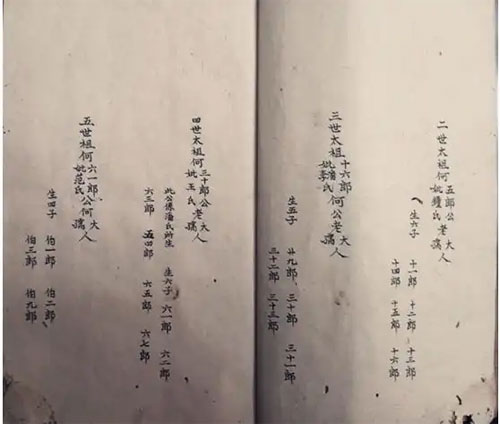 二世太祖何五郎公老大人
妣鍾氏孺
生六子 十一郎 十二郎 十三郎
十四郎 十五郎 十六郎
三世太祖十六郎何公老大人
妣潘氏李孺
生五子 廿九郎 三十郎 三十一郎
三十二郎 三十三郎
四世太祖何三十郎公老大人
妣王氏孺
此公係潘氏所生 生六子 六一郎 六二郎
六三郎 五四郎 六五郎 六七郎
五世祖何六一郎公何大人
妣范氏孺
生四子 伯一郎 伯二郎
伯三郎 伯九郎